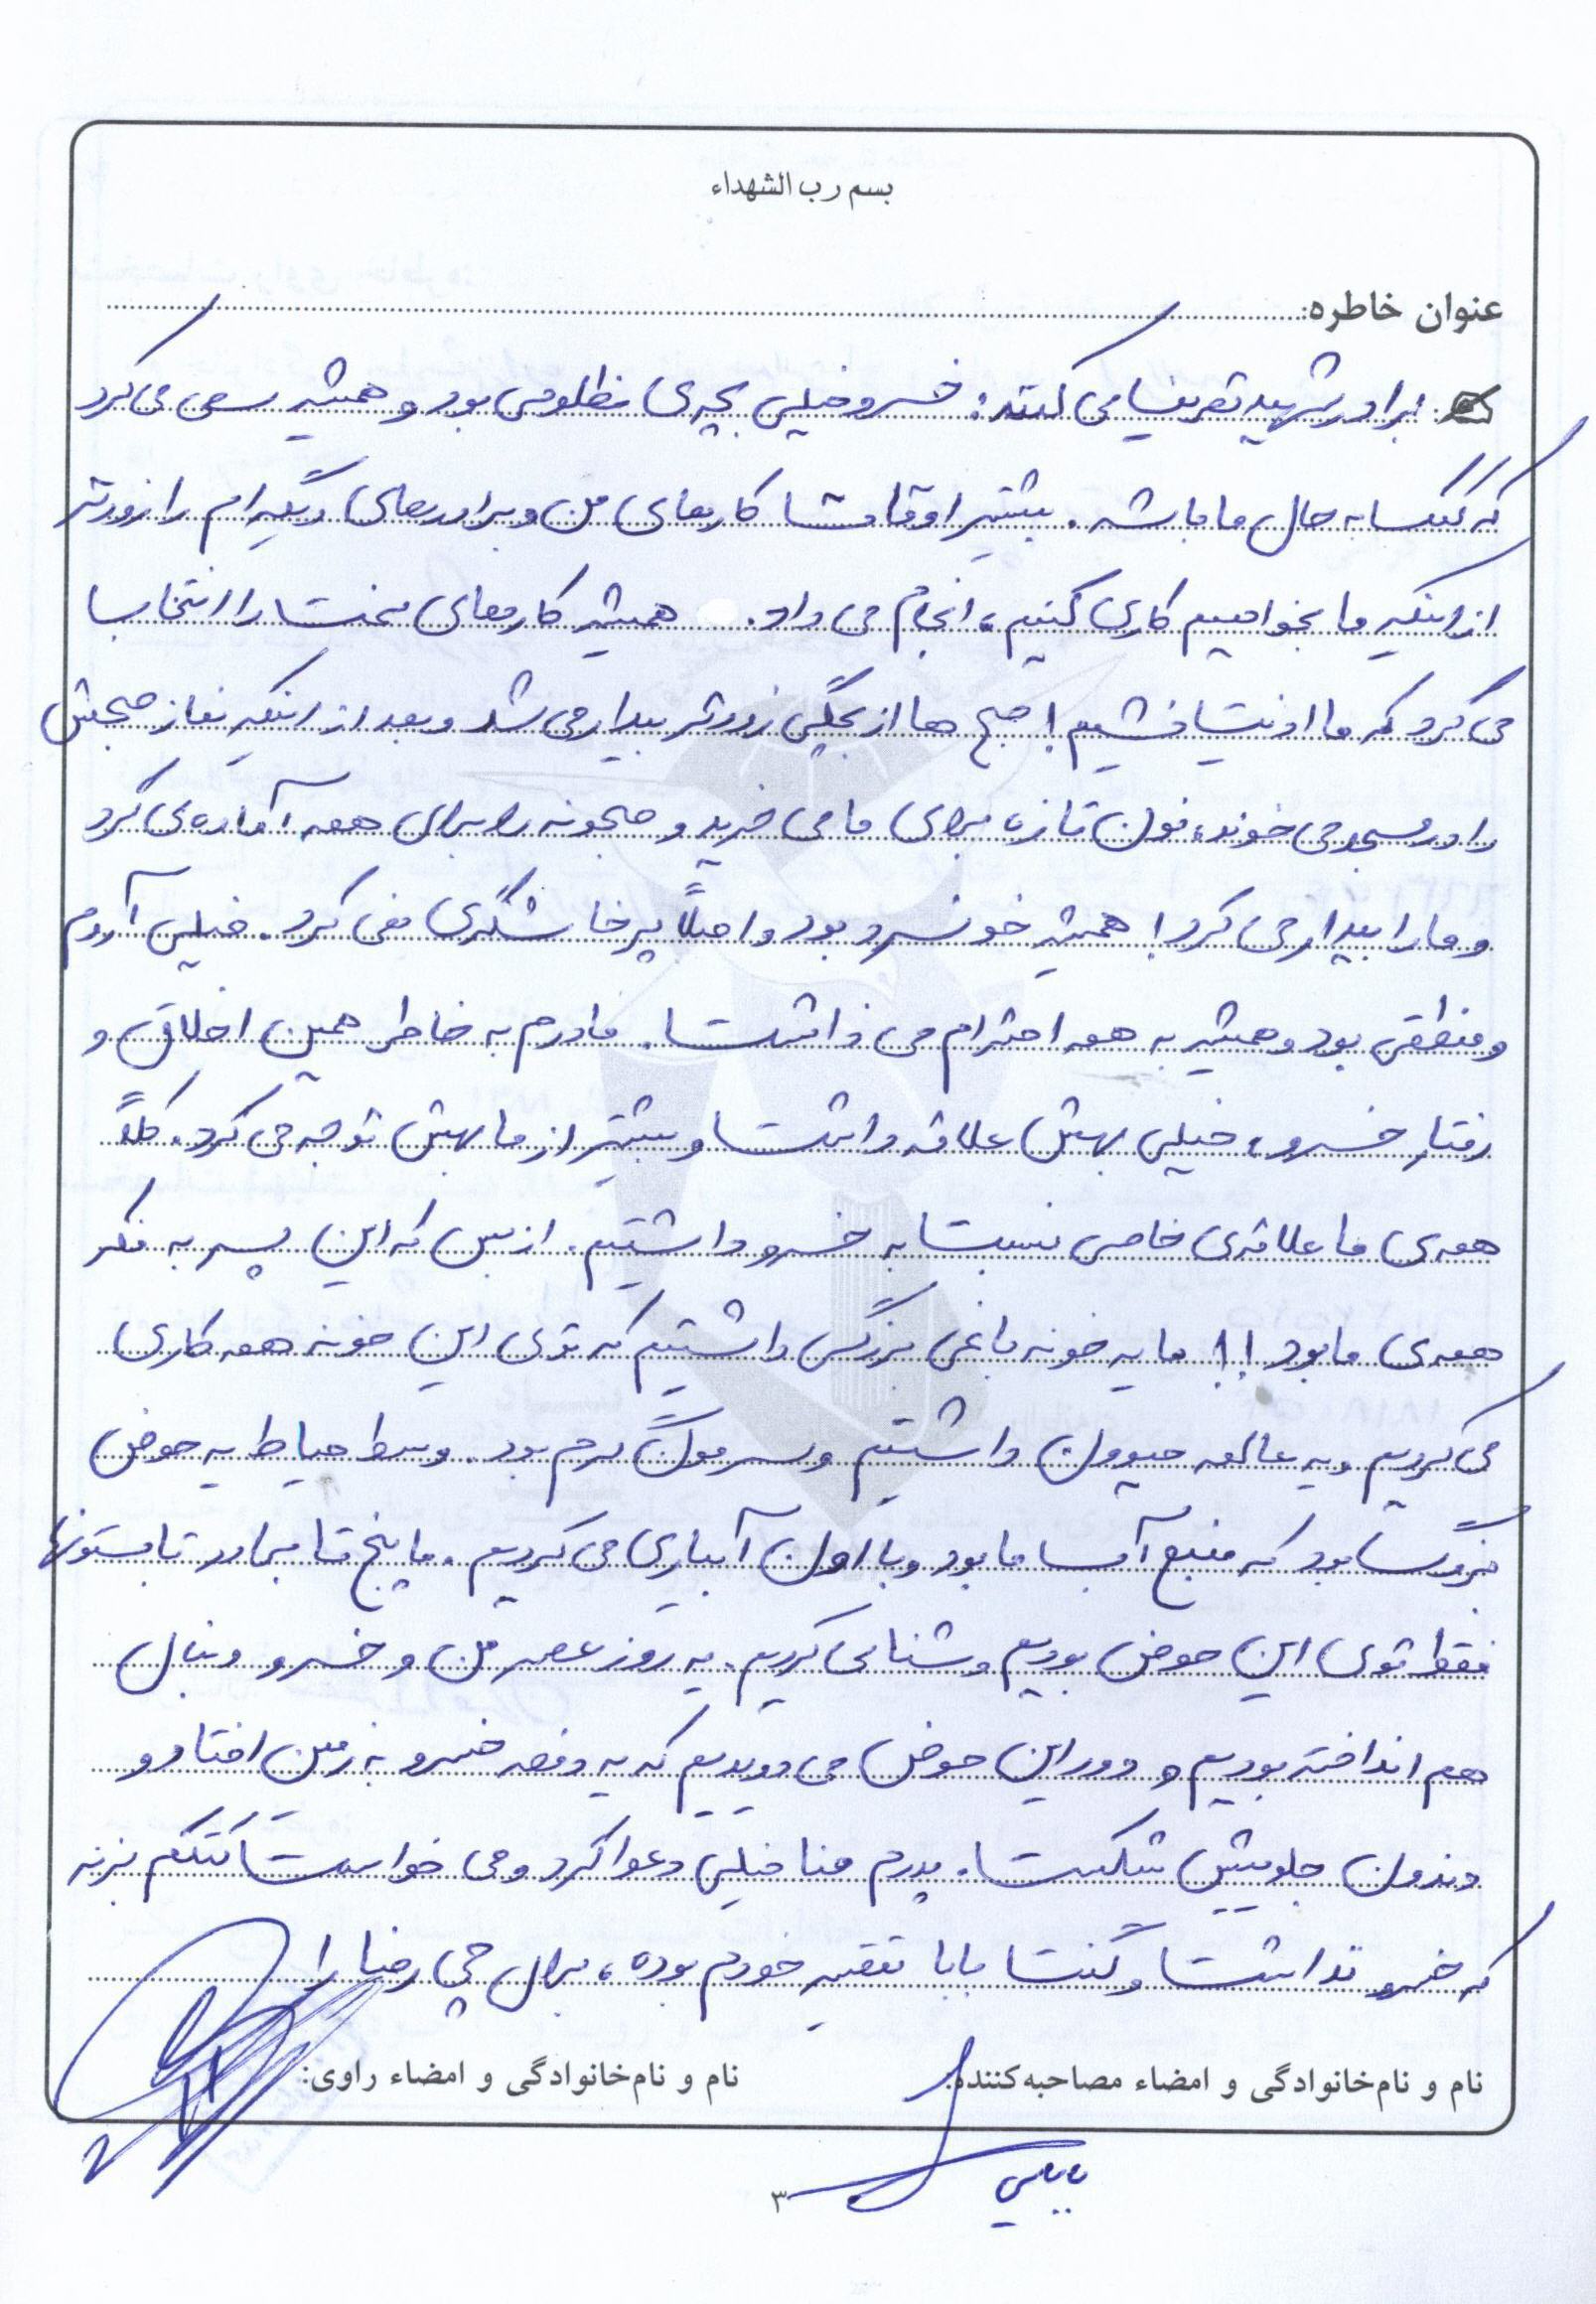 بسم رب الشهداء
عنوان خاطره:
برادر شهید تعریف می کنند: خسرو خیلی بچه ی مظلومی بود و همیشه سعی می کرد
که کمک به حال ما باشه. بیشتر اوقات کارهای من و برادرهای دیگه ام را زودتر
از اینکه ما بخواهیم کاری کنیم، انجام می داد. همیشه کارهای سخت را انتخاب
می کرد که ما اذیت نشیم! صبح ها از بچگی زودتر بیدار می شد و بعد از اینکه نماز صبحش
را در مسجد می خوند، نون تازه برای ما می خرید و صبحونه را برای همه آماده می کرد
و ما را بیدار می کرد! همیشه خونسرد بود و اصلاً پرخاشگری نمی کرد. خیلی آروم
و منطقی بود و همیشه به همه احترام می ذاشت. مادرم به خاطر همین اخلاق و
رفتار خسرو، خیلی بهش علاقه داشت و بیشتر از ما بهش توجه می کرد. کلاً
همه ی ما علاقه ی خاصی نسبت به خسرو داشتیم. از بس که این پسر به فکر
همه ی ما بود!! ما یه خونه باغی بزرگی داشتیم که توی این خونه همه کاری
می کردیم و یه عالمه حیوون داشتیم و سرمون گرم بود. وسط حیاط یه حوض
بزرگ بود که منبع آب ما بود و با اون آبیاری می کردیم. ما پنج تا برادر تابستونها
فقط توی این حوض بودیم و شنا می کردیم. یه روز عصر من و خسرو دنبال
هم انداخته بودیم و دور این حوض می دویدیم که یه دفعه خسرو به زمین افتاد و
دندون جلوییش شکست. پدرم منا خیلی دعوا کرد و می خواست کتکم بزنه
که خسرو نذاشت و گفت بابا تقصیر خودم بوده، برای چی رضا را
نام و نام‌خانوادگی و امضاء مصاحبه‌کننده:
نام و نام‌خانوادگی و امضاء راوی:
۳